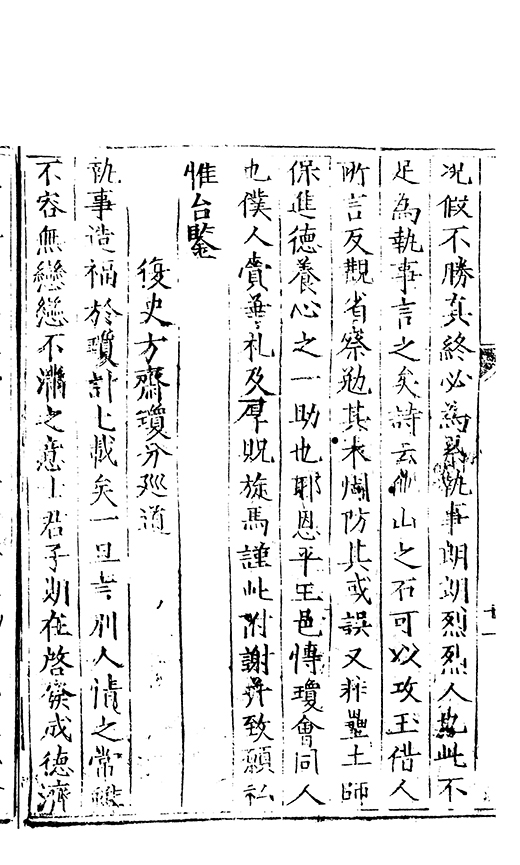 況假不勝真終必為累執事朗朗烈烈人也此不
足為執事言之矣詩云他山之石可以攻玉借人
所言反觀省察勉其未備防其或誤又非璽土師
保進德養心之一助也耶恩平王邑博瓊會同人
也僕人賫華札及厚貺旋馬謹此附謝并致願私
惟台鑒
復史方齋瓊分廵道
執事造福於瓊計七載矣一旦言別人情之常雖
不容無戀戀不滿之意士君子期在啓突成德濟